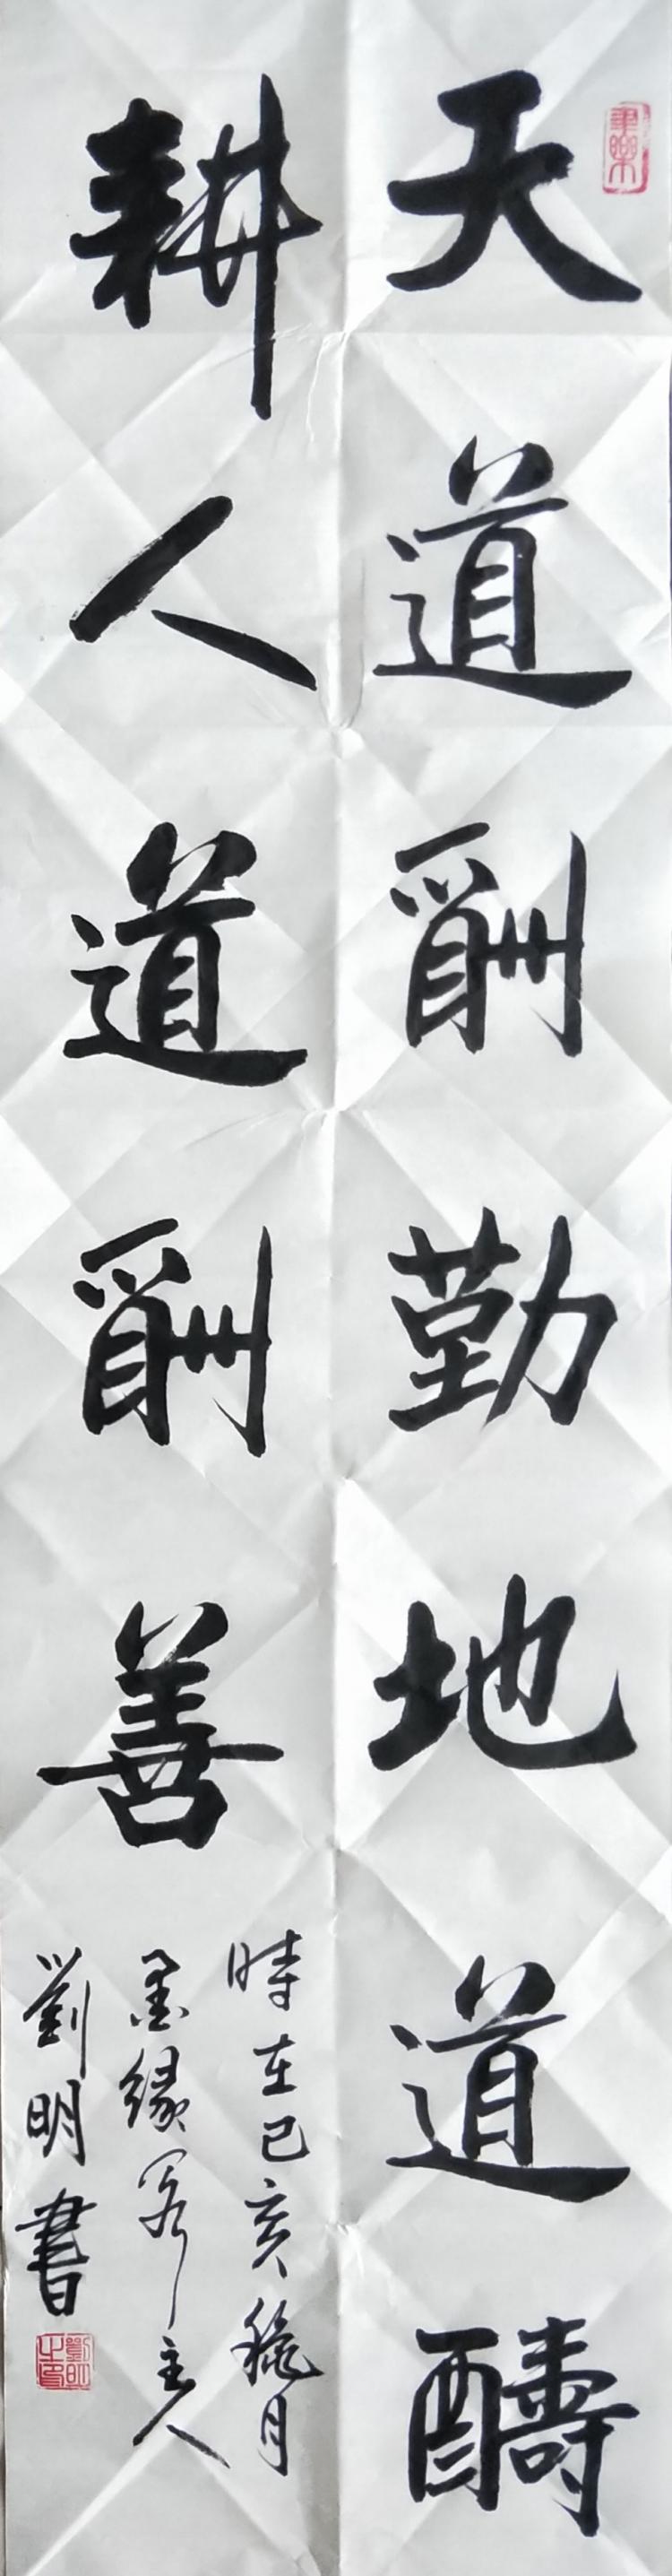 天道酬勤地道醻
耕人道酬善
時在己亥
月
墨緣
主人
劉明書